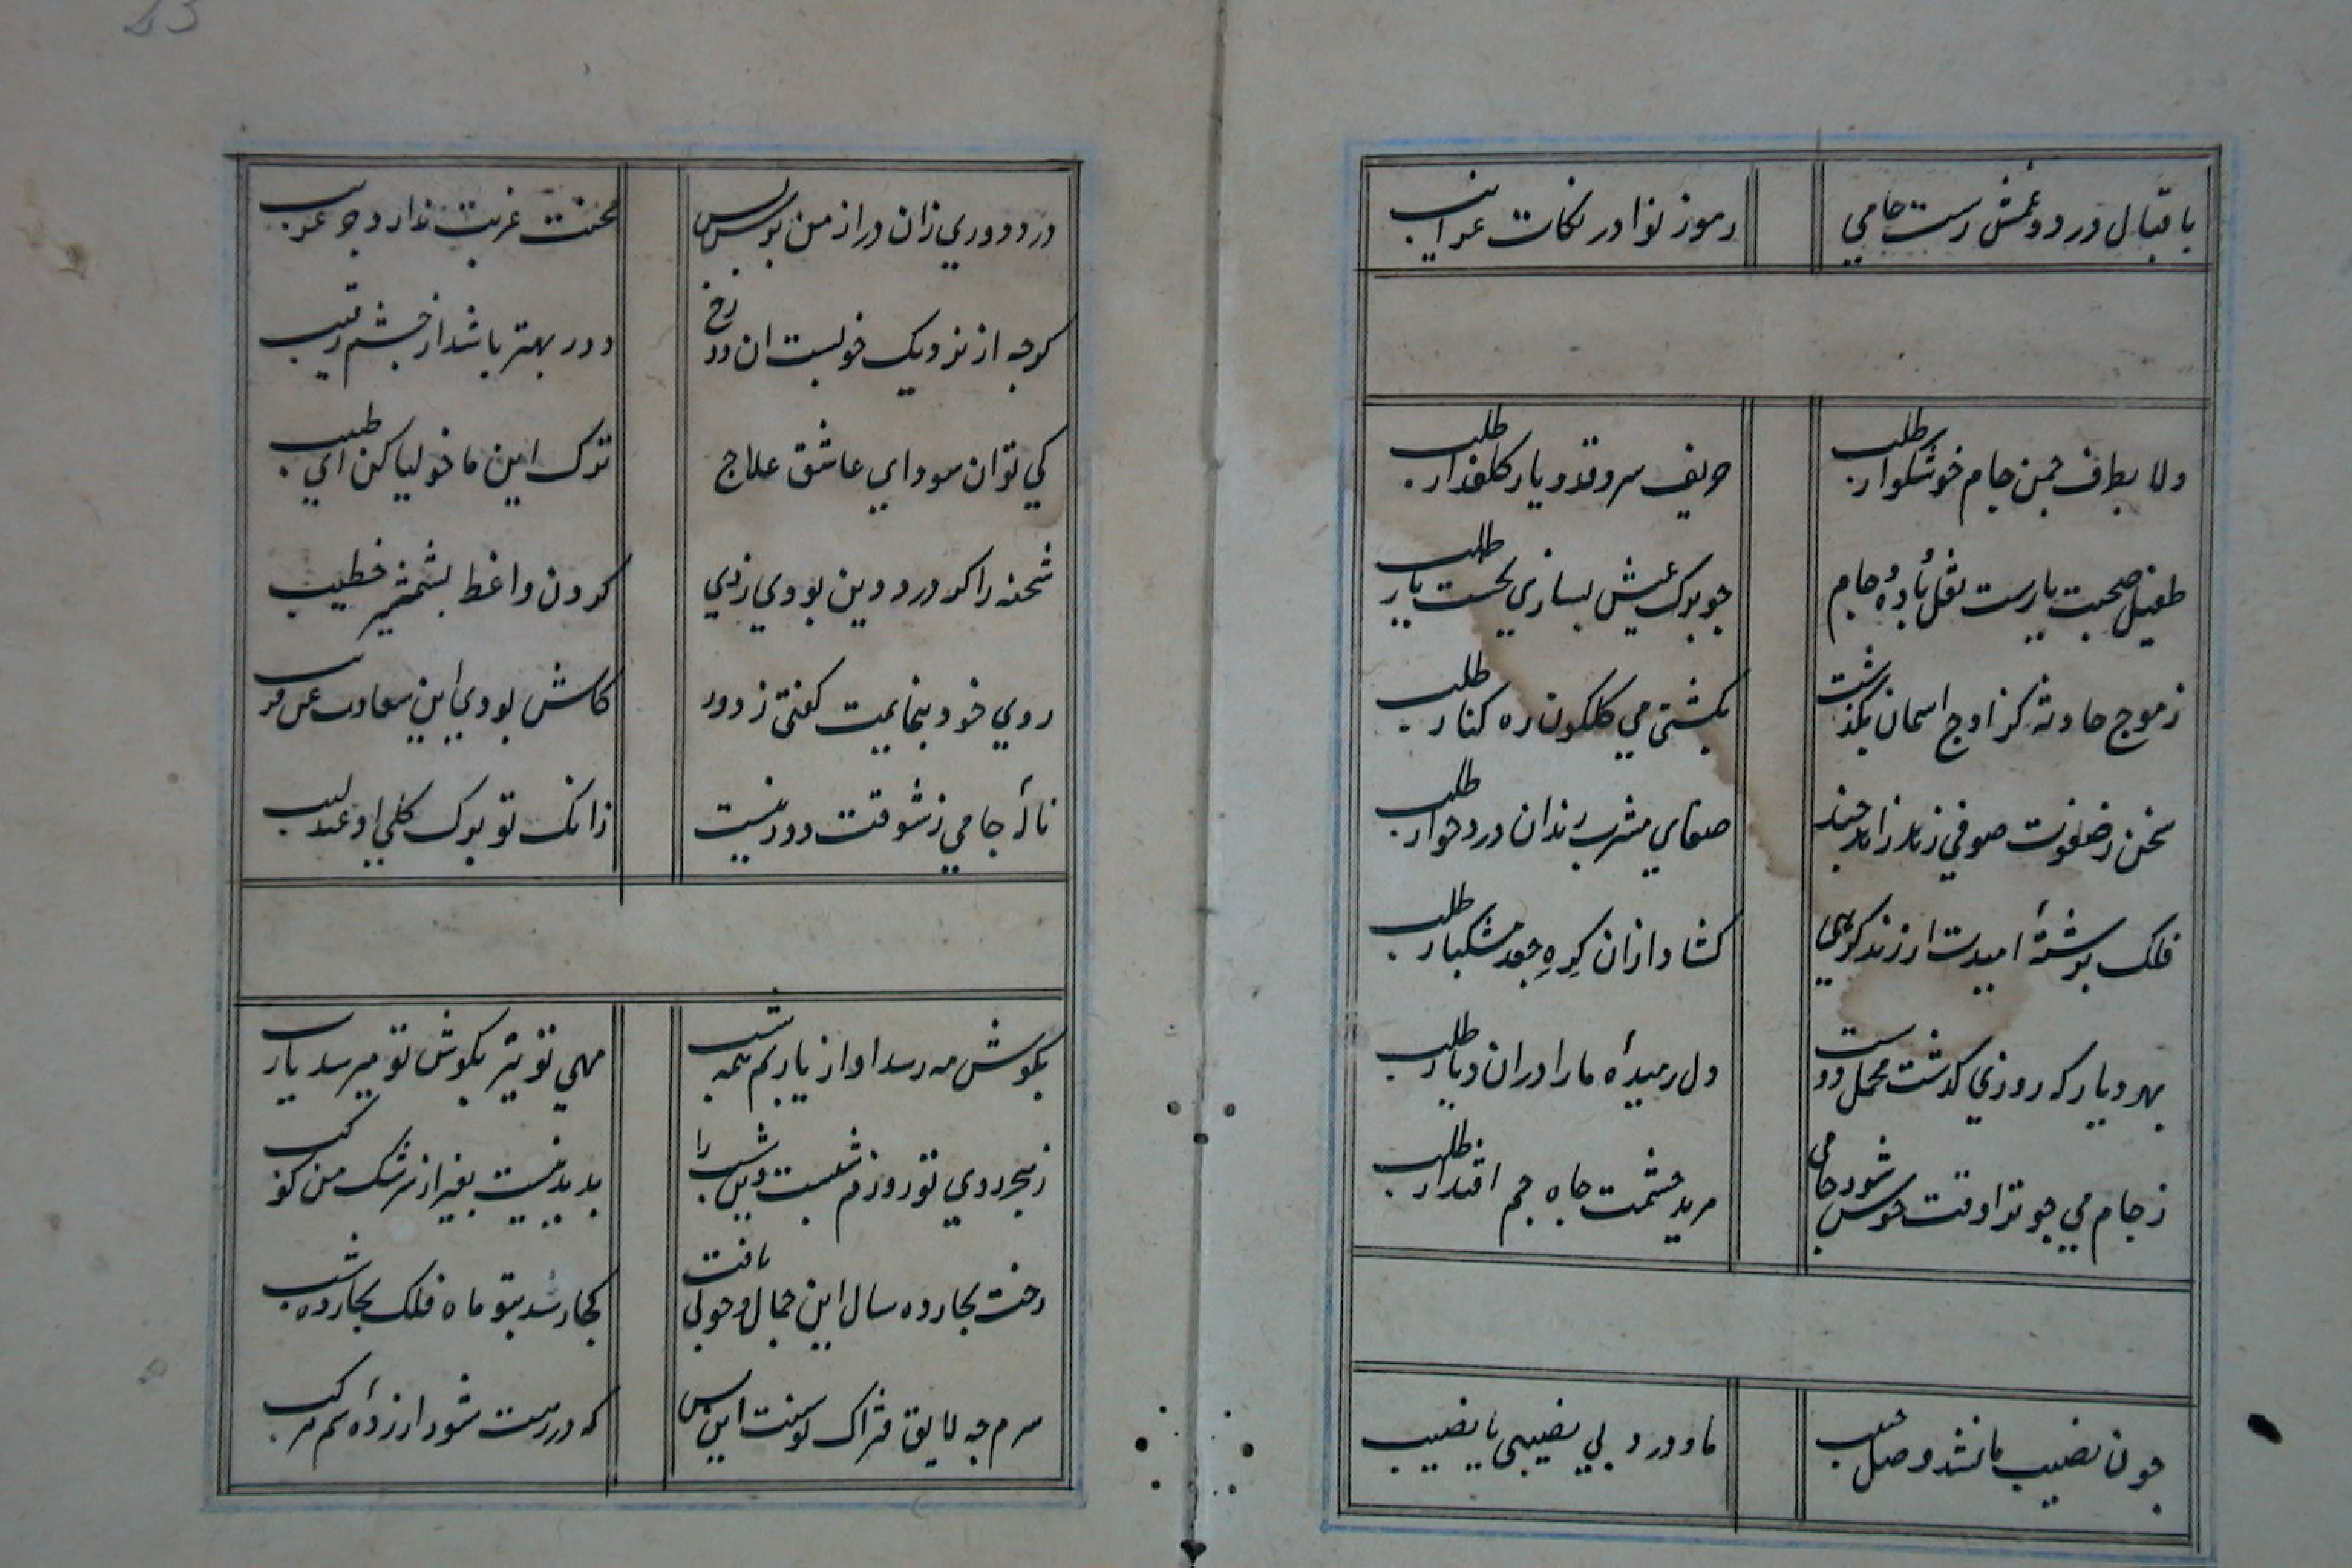 باقبال درد و غمش رست جامي رموز نوادر نكات غرايب
دلا بطرف چمن جام خوشكوار طلب حريف سروقد و يار كلعذار طلب
طفيل صحبت يارست نقل و باده و جام چو برك عيش بسازي نخست يار طلب
ز موج حادثه كز اوج اسمان بكذشت بكشتي مي كلكون ره كنار طلب
سخن ز صفوت صوفي زند زاهد چند صفاي مشرب رندان دردخوار طلب
فلك برشتهٔ اميدت ار زند كرهي كشاد از ان كره جعد مشكبار طلب
بهر ديار كه روزي كذشت محمل دوست دل رميدهٔ ما را در ان ديار طلب
ز جام مي چو ترا وقت خوش شود جامي مريد حشمت جاه جم اقتدار طلب
چون نصيب ما نشد وصل حبيب ما و درد بي نصيبي يا نصيب
درد دوري زان در از من پرس پرس محنت غربت نداند جز غريب
كرچه از نزديك خوبست ان رخ دور بهتر باشد از چشم رقيب
كي توان سوداي عاشق علاج ترك اين ماخوليا كن اي طبيب
شحنه را كر درد دين بودي زدي كردن واعظ بشمشير خطيب
روي خود بنمايمت كفتي ز دور كاش بودي اين سعادت عن قريب
نالهٔ جامي ز شوقت دور نيست زانك تو برك كلي او عندليب
بكوش مه رسد اواز ياربم همه شب مهي تو نيز بكوش تو ميرسد يارب
ز هجر روي تو روزم شبست وين شب را پديد نيست بغير از سرشك من كوكب
رخت بچارده سال اين جمال و خوبي يافت كجا رسد بتو ماه فلك بچارده شب
سرم چه لايق فتراك توست اين بس كه در رهت شود ازردهٔ سم مركب